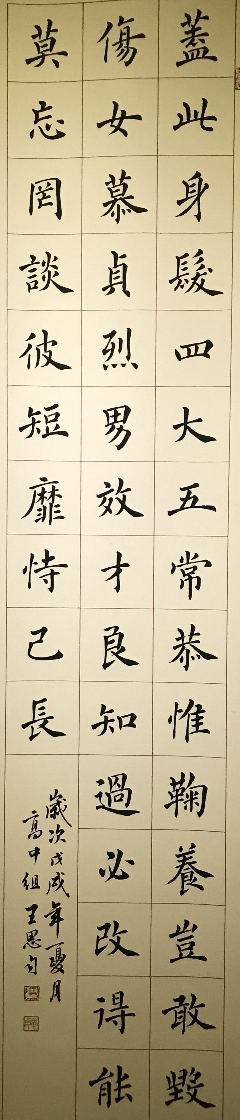 蓋此身髮四大五常恭惟鞠養豈敢毀
傷女慕貞烈男效才良知過必改得能
莫忘罔談彼短靡恃己長
歲次戊戌年夏月
高中組王思勻